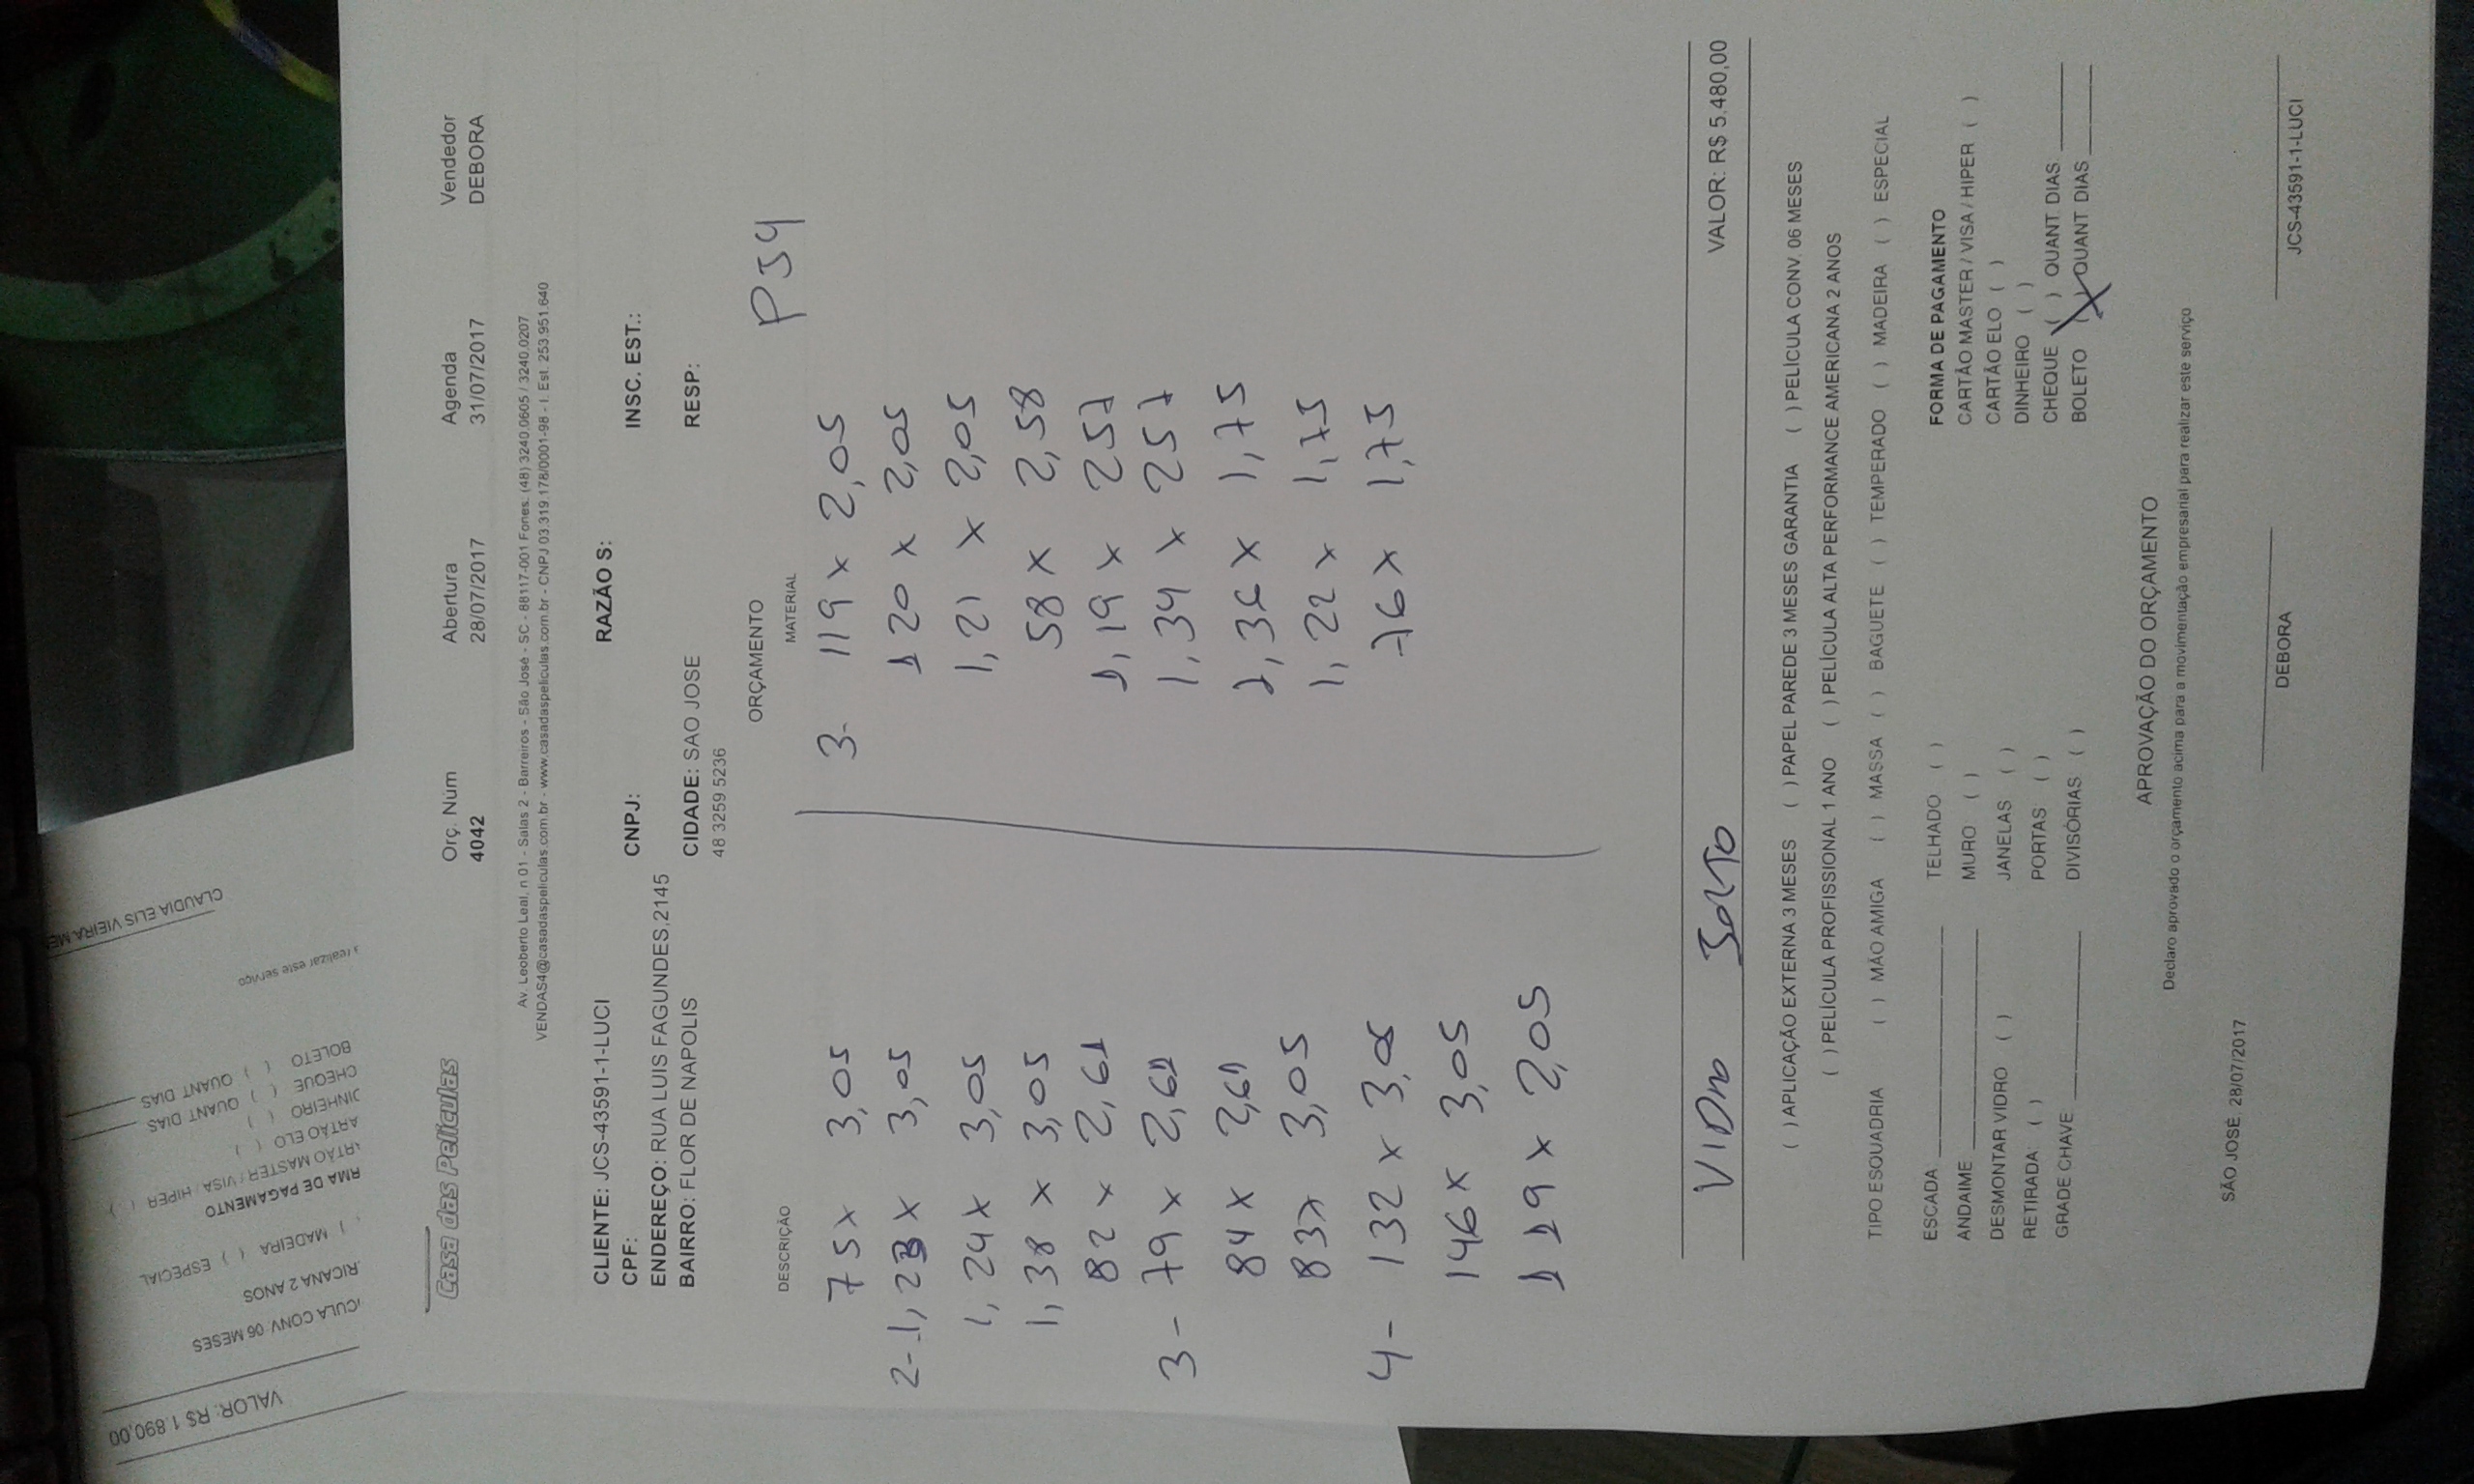 Casa das Películas
Orç. Núm Abertura Agenda Vendedor
4042 28/07/2017 31/07/2017 DEBORA
Av. Leoberto Leal, n 01 - Salas 2 - Barreiros - São José - SC - 88117-001 Fones: (48) 3240.0605 / 3240.0207
VENDAS4@casadaspeliculas.com.br - www.casadaspeliculas.com.br - CNPJ 03.319.178/0001-98 - I. Est. 253.951.640
CLIENTE: JCS-43591-1-LUCI RAZÃO S:
CPF: CNPJ: INSC. EST.:
ENDEREÇO: RUA LUIS FAGUNDES,2145
BAIRRO: FLOR DE NAPOLIS CIDADE: SAO JOSE RESP:
48 3259 5236
ORÇAMENTO
DESCRIÇÃO MATERIAL
PS4
75x 3,05
2-1,23x 3,05
1,24x 3,05
1,38x 3,05
82x 2,61
3- 79x 2,61
84x 2,61
83x 3,05
4- 132x 3,05
146x 3,05
119x 2,05
3- 119x 2,05
120x 2,05
1,21x 2,05
58x 2,58
1,19x 257
1,34x 257
1,36x 1,75
1,22x 1,75
76x 1,75
VIDRO SOLTO
VALOR: R$ 5.480,00
( ) APLICAÇÃO EXTERNA 3 MESES ( ) PAPEL PAREDE 3 MESES GARANTIA ( ) PELÍCULA CONV. 06 MESES
( ) PELÍCULA PROFISSIONAL 1 ANO ( ) PELÍCULA ALTA PERFORMANCE AMERICANA 2 ANOS
TIPO ESQUADRIA ( ) MÃO AMIGA ( ) MASSA ( ) BAGUETE ( ) TEMPERADO ( ) MADEIRA ( ) ESPECIAL
ESCADA TELHADO ( )
ANDAIME MURO ( )
DESMONTAR VIDRO ( ) JANELAS ( )
RETIRADA: ( ) PORTAS ( )
GRADE CHAVE DIVISÓRIAS ( )
FORMA DE PAGAMENTO
CARTÃO MASTER / VISA / HIPER ( )
CARTÃO ELO ( )
DINHEIRO ( )
CHEQUE ( ) QUANT DIAS
BOLETO (X) QUANT DIAS
APROVAÇÃO DO ORÇAMENTO
Declaro aprovado o orçamento acima para a movimentação empresarial para realizar este serviço
SÃO JOSÉ, 28/07/2017
DEBORA JCS-43591-1-LUCI
VALOR: R$ 1.890,00
ÍCULA CONV. 06 MESES
RICANA 2 ANOS
) MADEIRA ( ) ESPECIAL
RMA DE PAGAMENTO
ARTÃO MASTER / VISA / HIPER ( )
ARTÃO ELO ( )
DINHEIRO ( )
CHEQUE ( ) QUANT DIAS
BOLETO ( ) QUANT DIAS
realizar este serviço
CLAUDIA ELIS VIEIRA